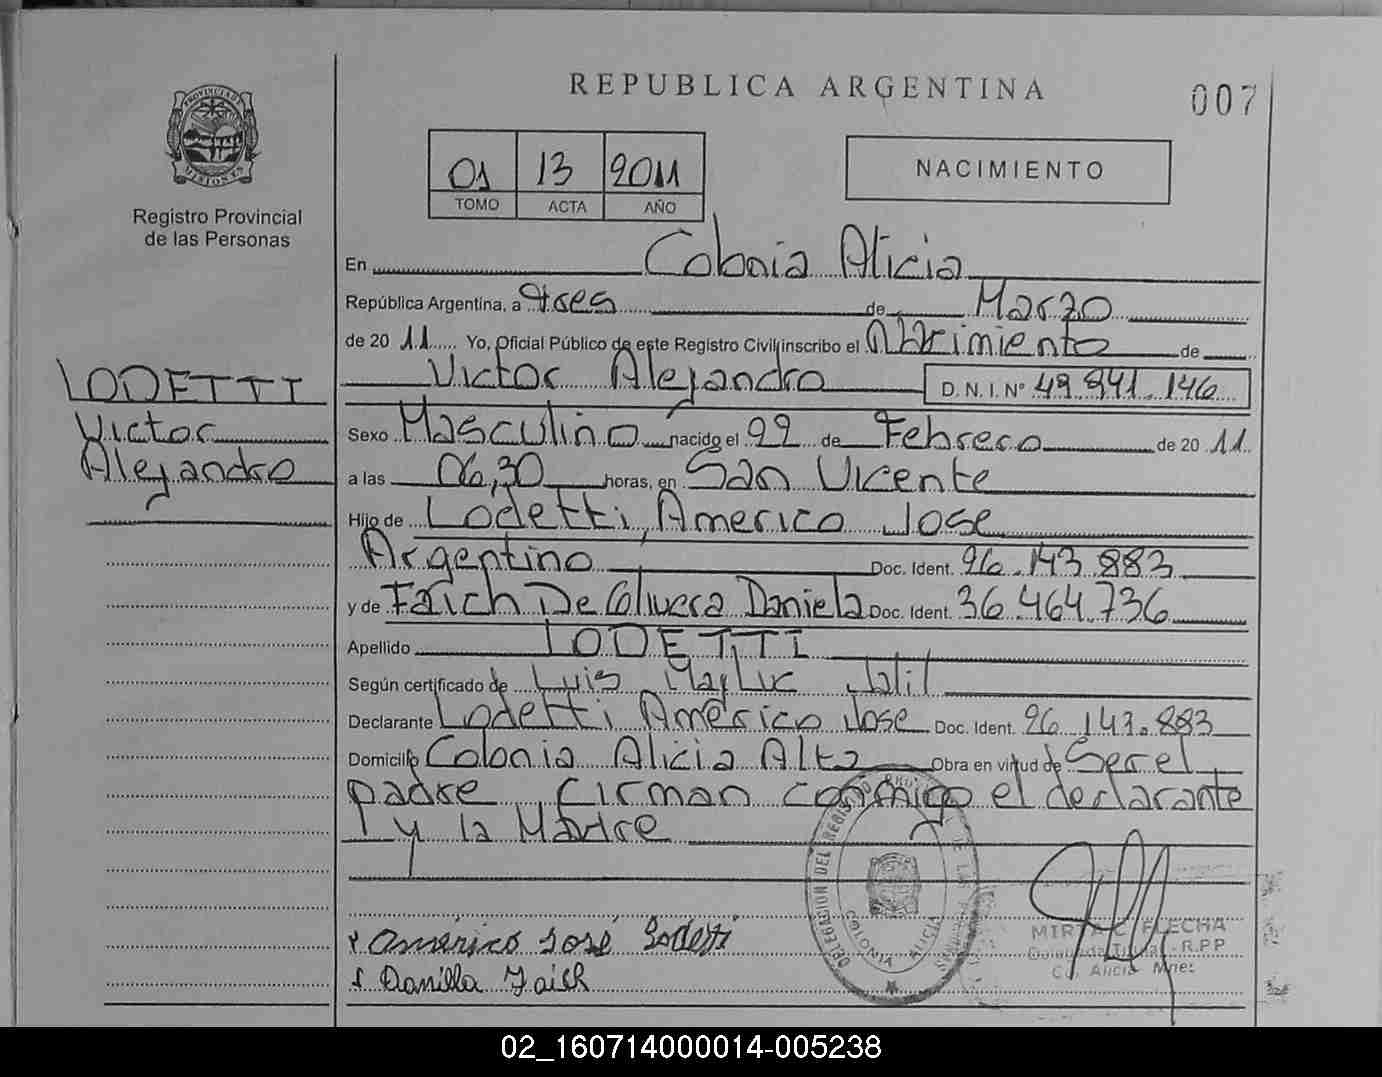 REPUBLICA ARGENTINA
007
PROVINCIA DE MISIONES
Registro Provincial
de las Personas
01 13 2011
TOMO ACTA AÑO
NACIMIENTO
LODETTI
Victor
Alejandro
En Colonia Alicia
República Argentina, a tres de Marzo
de 20 11 Yo, Oficial Público de este Registro Civil inscribo el de
Victor Alejandro D. N. I. Nº 49.841.146
Sexo Masculino nacido el 22 de Febrero de 20 11
a las 06,30 horas, en San Vicente
Hijo de Lodetti, Americo Jose
Argentino Doc. Ident. 26.143.883
y de Faich De Olivera Daniela Doc. Ident. 36.464.736
Apellido LODETTI
Según certificado de Luis Jalil
Declarante Lodetti Américo Jose Doc. Ident. 26.143.883
Domicilio Colonia Alicia Alta Obra en virtud de Ser el
padre, firman conmigo el declarante
y la Madre
DELEGACION DEL REGISTRO DE LAS PERSONAS
COLONIA ALICIA
Américo José Lodetti
Daniela Faich
MIRTA C. FLECHA
Delegada Titular - R.P.P
Col. Alicia Mnes
02_160714000014-005238